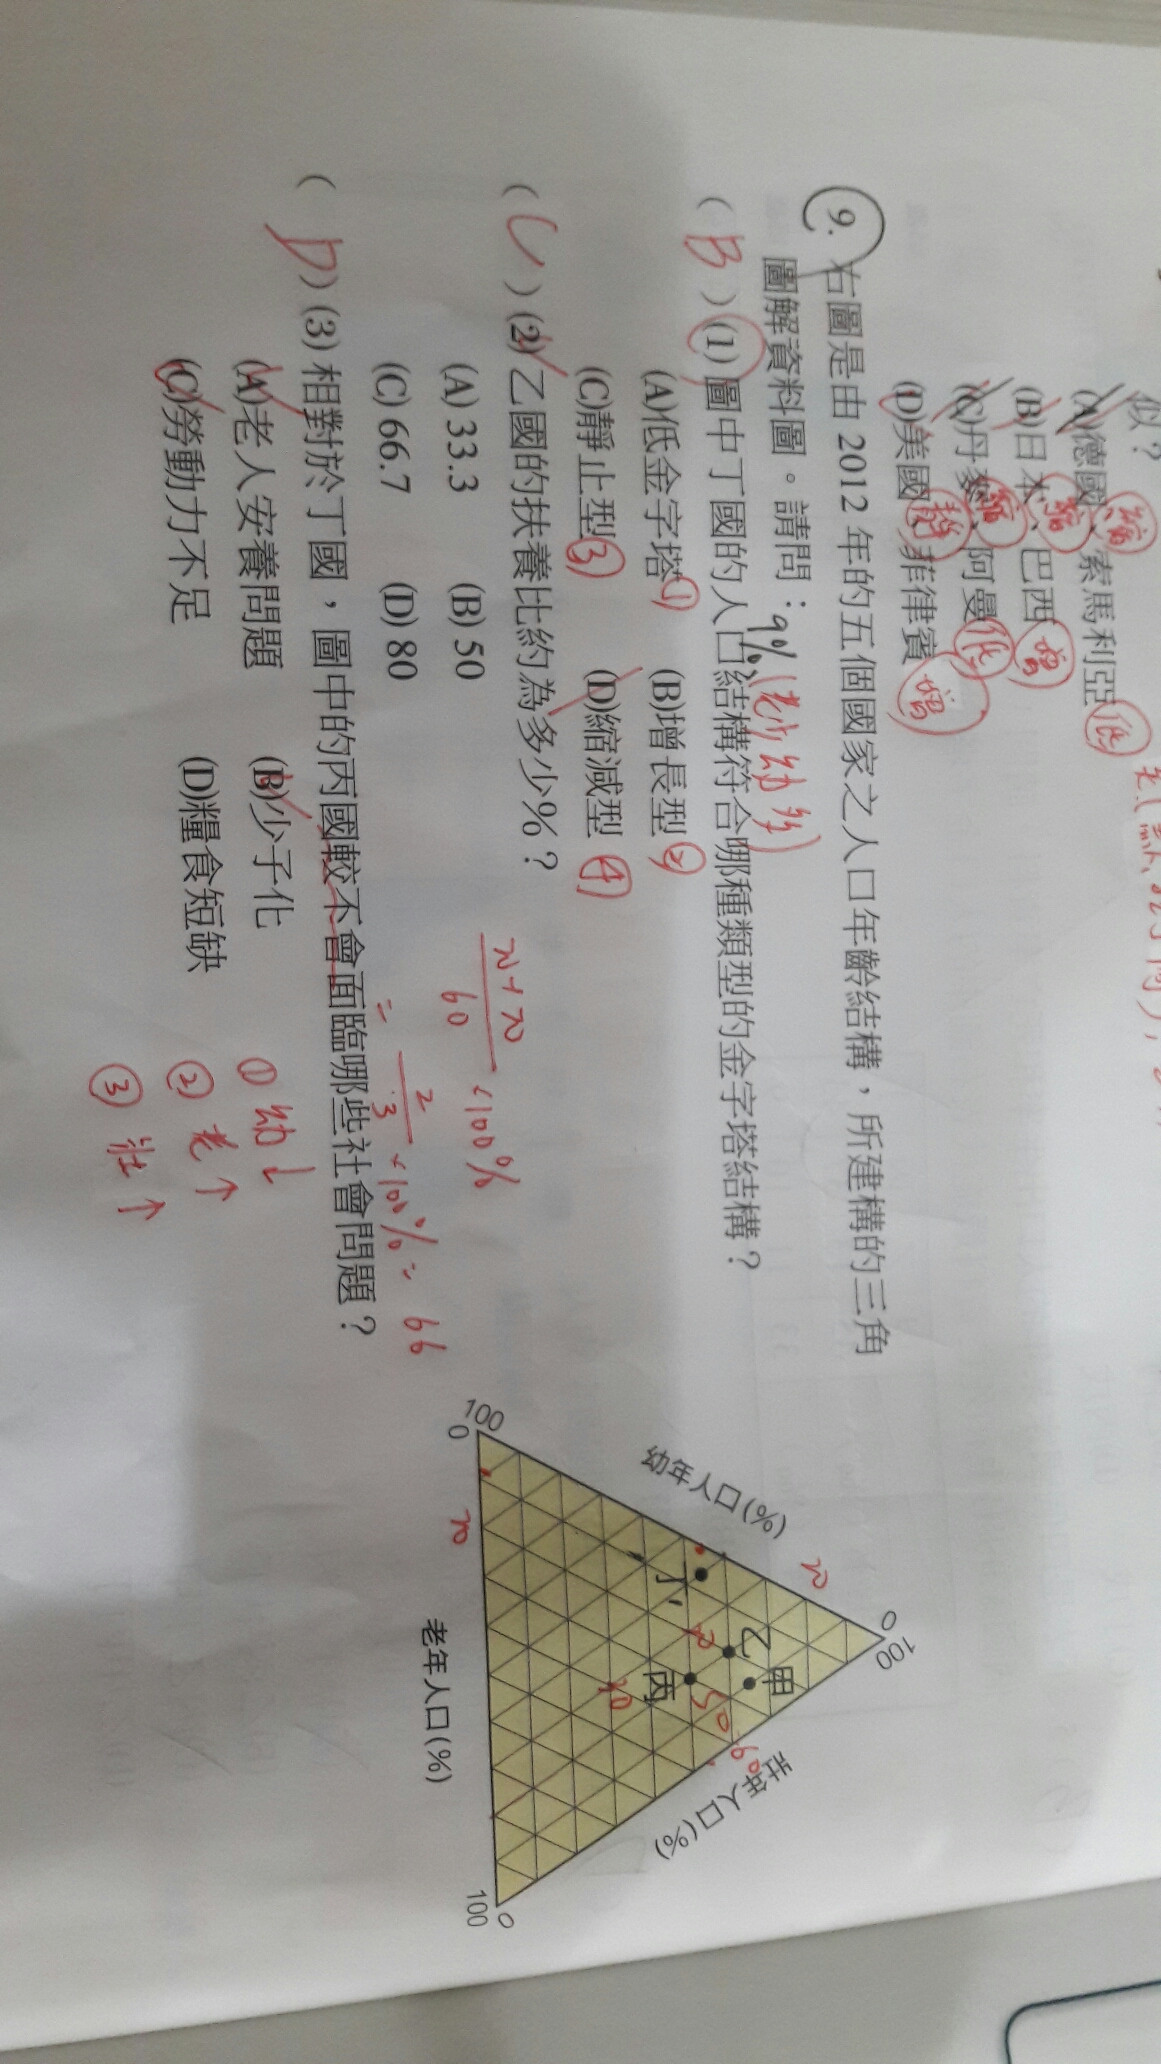 似？
(A)德國、索馬利亞
縮
低
(B)日本、巴西
縮
增
(C)丹麥、阿曼
縮
低
(D)美國、菲律賓
靜
增
9. 右圖是由 2012 年的五個國家之人口年齡結構，所建構的三角
圖解資料圖。請問：
9%(老少幼多)
(B) (1) 圖中丁國的人口結構符合哪種類型的金字塔結構？
(A)低金字塔① (B)增長型②
(C)靜止型③ (D)縮減型④
(C) (2) 乙國的扶養比約為多少%？
(A) 33.3 (B) 50
(C) 66.7 (D) 80
20+20
60
×100%
= 2
3
×100% = 66
(D) (3) 相對於丁國，圖中的丙國較不會面臨哪些社會問題？
(A)老人安養問題 (B)少子化
(C)勞動力不足 (D)糧食短缺
① 幼↓
② 老↑
③ 壯↑
幼年人口(%)
壯年人口(%)
老年人口(%)
0
100
100
0
100
0
甲
乙
丙
丁
20
20
50
60